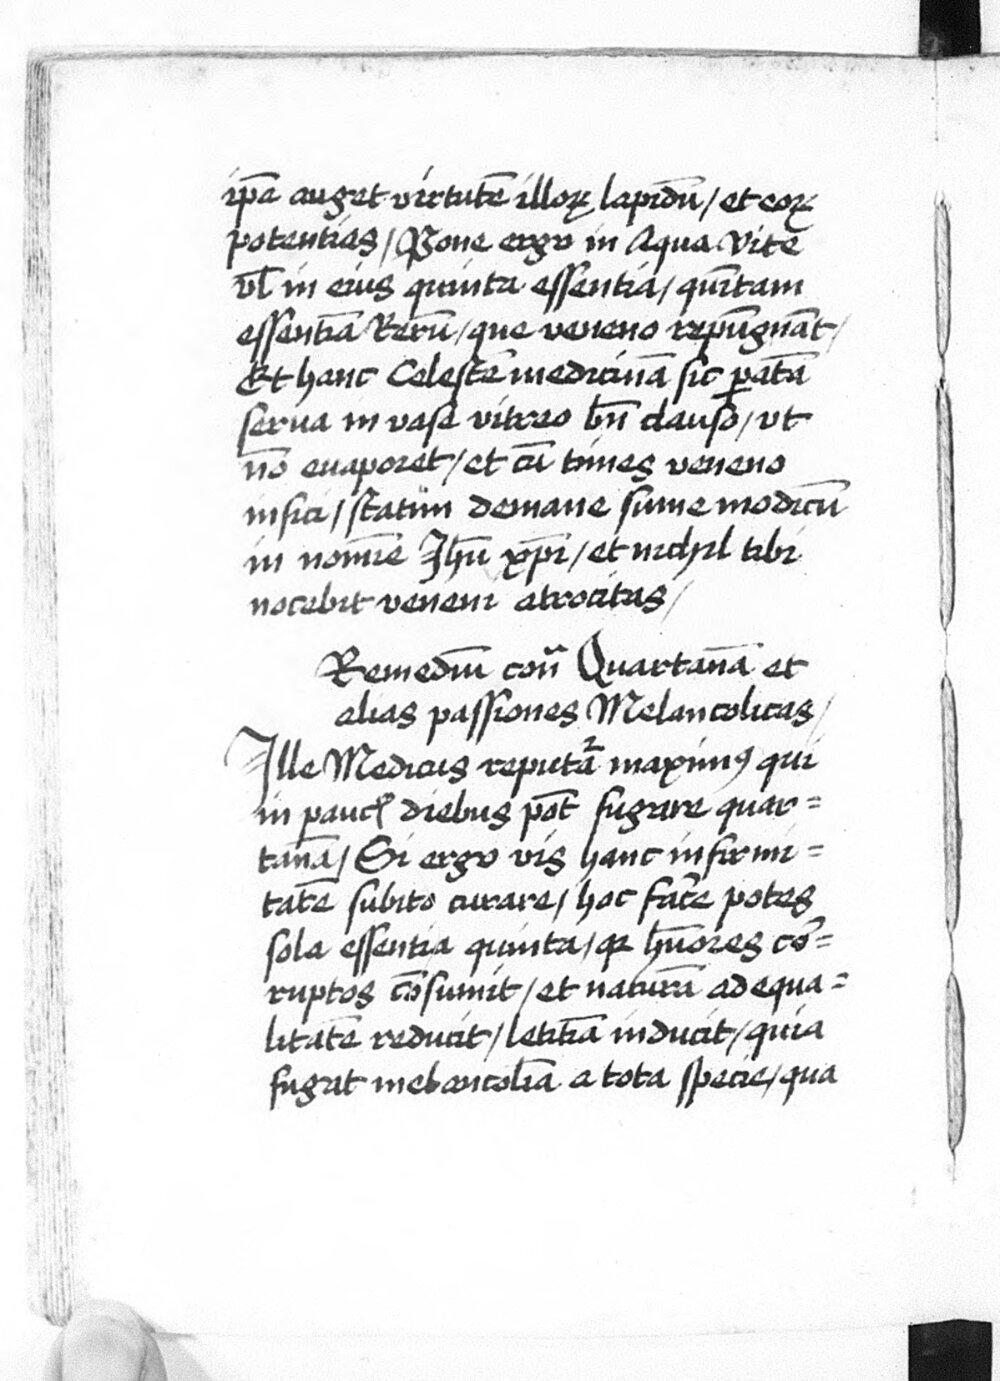 ip̄a auget virtutē illoꝝ lapidū / et eoꝝ
potentias / Pone ergo in Aqua Vite
vl̄ in eius quinta essentia / quītam
essentiā Rerū / que veneno repūgnāt /
Et hanc Celestē medicinā sic ꝑatā
serua in vase vitreo bn̄ clauso / vt
nō euaporet / et cū times veneno
infici / statim demane sume modicū
in nomīe Jhū xp̄i / et nichil tibi
nocebit veneni atrocitas /
Remediū cōn Quartanā et
alias passiones Melancolicas /
Jlle Medicus reputat̄ maximꝰ qui
in paucꝭ diebus pōt fugare quar=
tanā / Si ergo vis hanc infirmi=
tatē subito curare / hoc facē potes
sola essentia quinta / qꝛ hūores cō=
ruptos cōsumit / et naturā ad equa=
litatē reducit / letitiā inducit / quia
fugat melancolīa a tota specie / qua